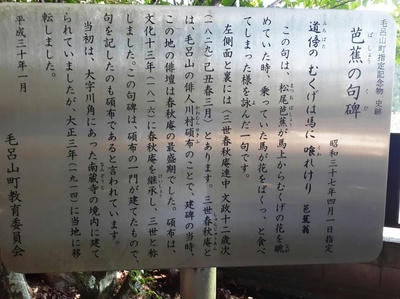 毛呂山町指定記念物 史跡
芭蕉の句碑
ばしょう
くひ
昭和三十七年四月一日指定
道傍の むくげは馬に 喰れけり 芭蕉翁
この句は、松尾芭蕉が馬上からむくげの花を眺
めていた時、乗っていた馬が花をぱくっ、と食べ
てしまった様を詠んだ一句です。
左側面と裏には「三世春秋庵連中 文政十二歳次
(一八二九)己丑春三月」とあります。三世春秋庵と
は毛呂山の俳人川村碩布のことで、建碑の当時、
この地の俳壇は春秋庵の最盛期でした。碩布は、
文化十三年(一八一六)に春秋庵を継承し、三世と称
しました。この句碑は碩布の一門が建てたもので、
句を記したのも碩布であると言われています。
当初は、大字川角にあった南蔵寺の境内に建て
られていましたが、大正三年(一九一四)に当地に移
転しました。
平成三十年一月
毛呂山町教育委員会